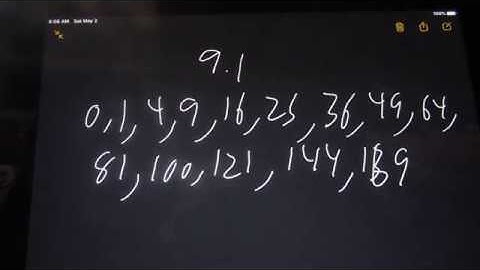 9:06 AM Sat May 2
100%
9.1
0,1,4,9,16,25,36,49,64,
81,100,121,144,169